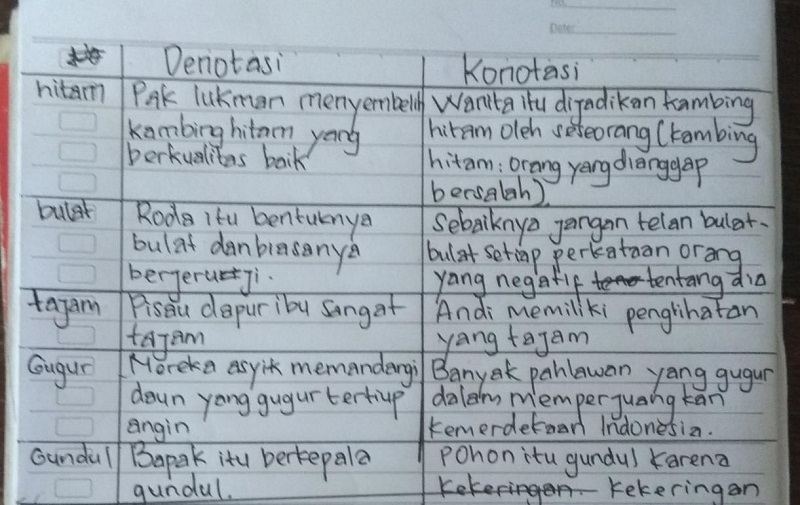 Date:
Denotasi Konotasi
hitam Pak lukman menyembelih Wanita itu dijadikan kambing
kambing hitam yang hitam oleh seseorang (kambing
berkualitas baik hitam : orang yang dianggap
bersalah).
bulat Roda itu bentuknya Sebaiknya jangan telan bulat-
bulat dan biasanya bulat setiap perkataan orang
bergeruji. yang negatif tentang dia
tajam Pisau dapur ibu sangat Andi memiliki penglihatan
tajam yang tajam
Gugur Mereka asyik memandangi Banyak pahlawan yang gugur
daun yang gugur tertiup dalam memperjuangkan
angin kemerdekaan Indonesia.
Gundul Bapak itu berkepala Pohon itu gundul karena
gundul. kekeringan kekeringan